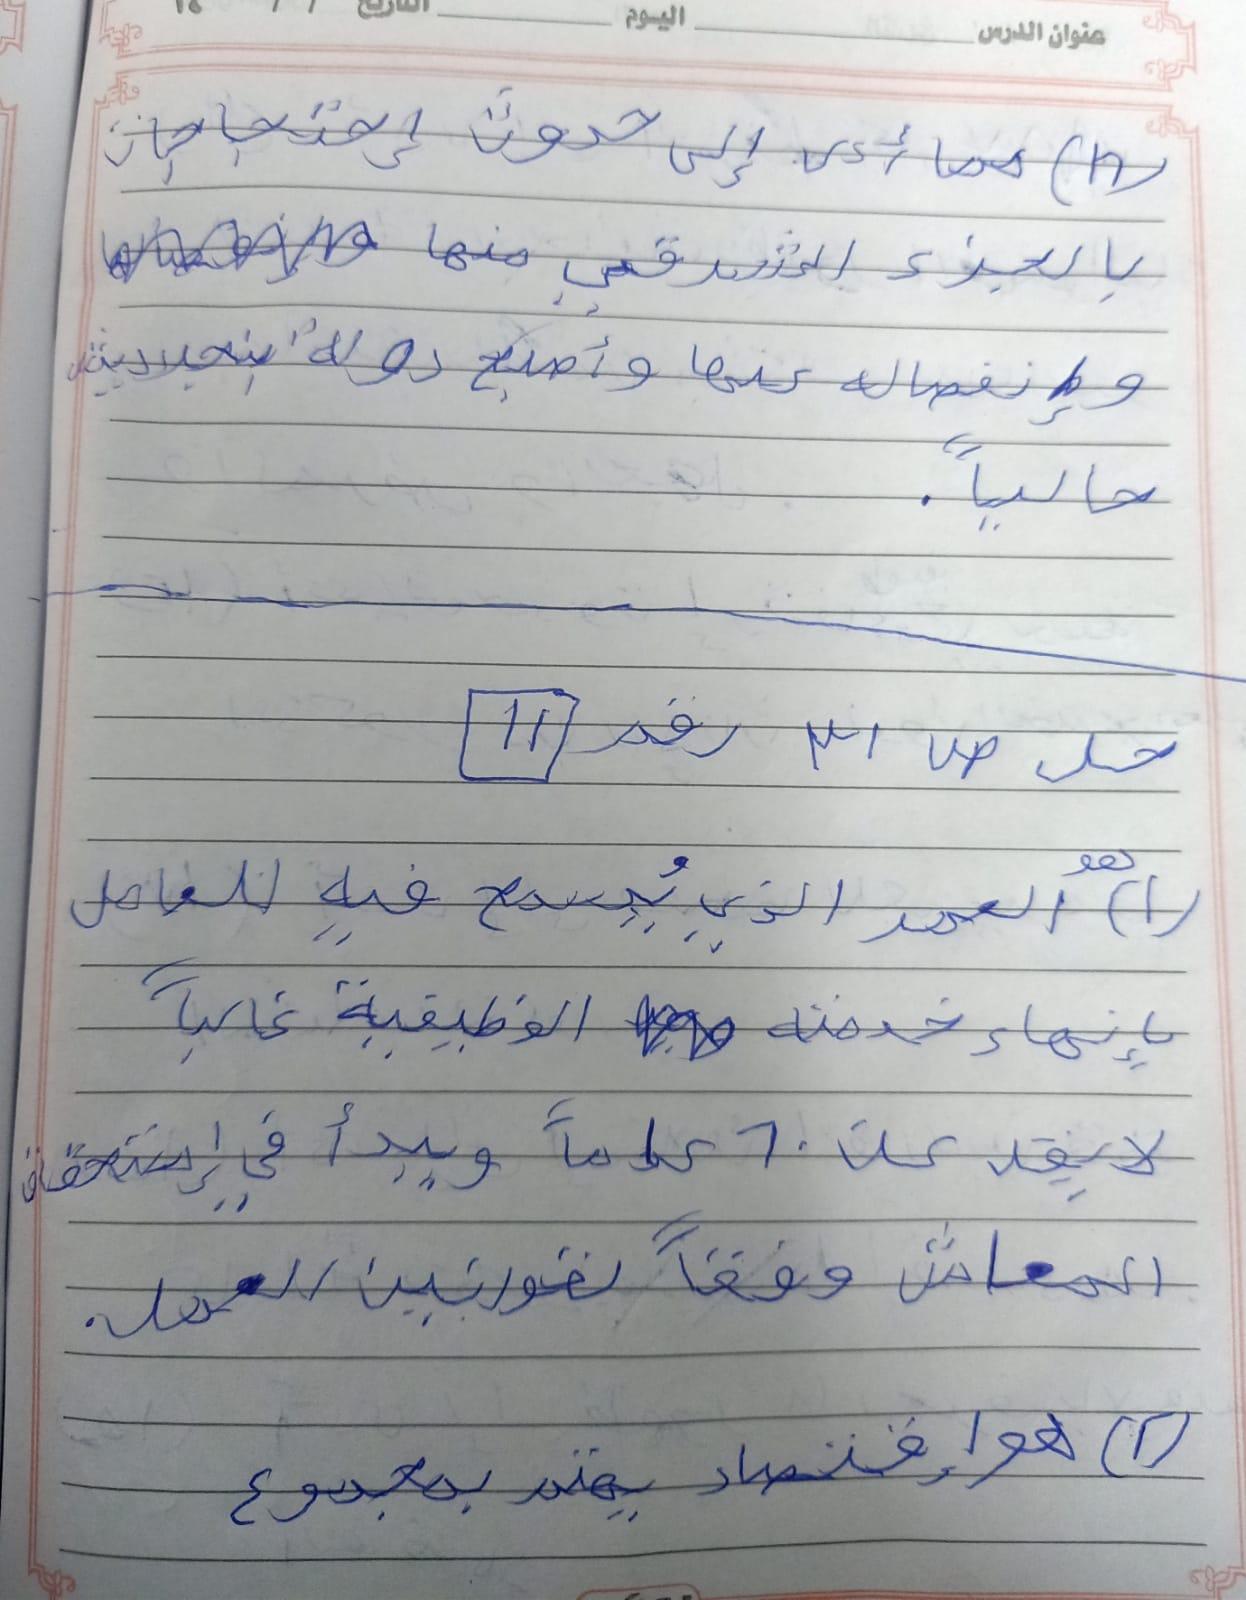 عنوان الدرس اليوم التاريخ / /
(٣) مما أدى إلى حدوث إحتجاجات
بالجزء الشرقي منها
وإنفصاله عنها وأصبح دولة بنجلاديش
حالياً.
حل ص ٣١ رقم 11
(١) هو العمر الذي يُسمح فيه للعامل
بإنهاء خدمته الوظيفية غالباً
لا يقل عن ٦٠ عاماً ويبدأ في إستحقاق
المعاش وفقاً لقوانين العمل.
(٢) هو إقتصاد يهتم بمجموع